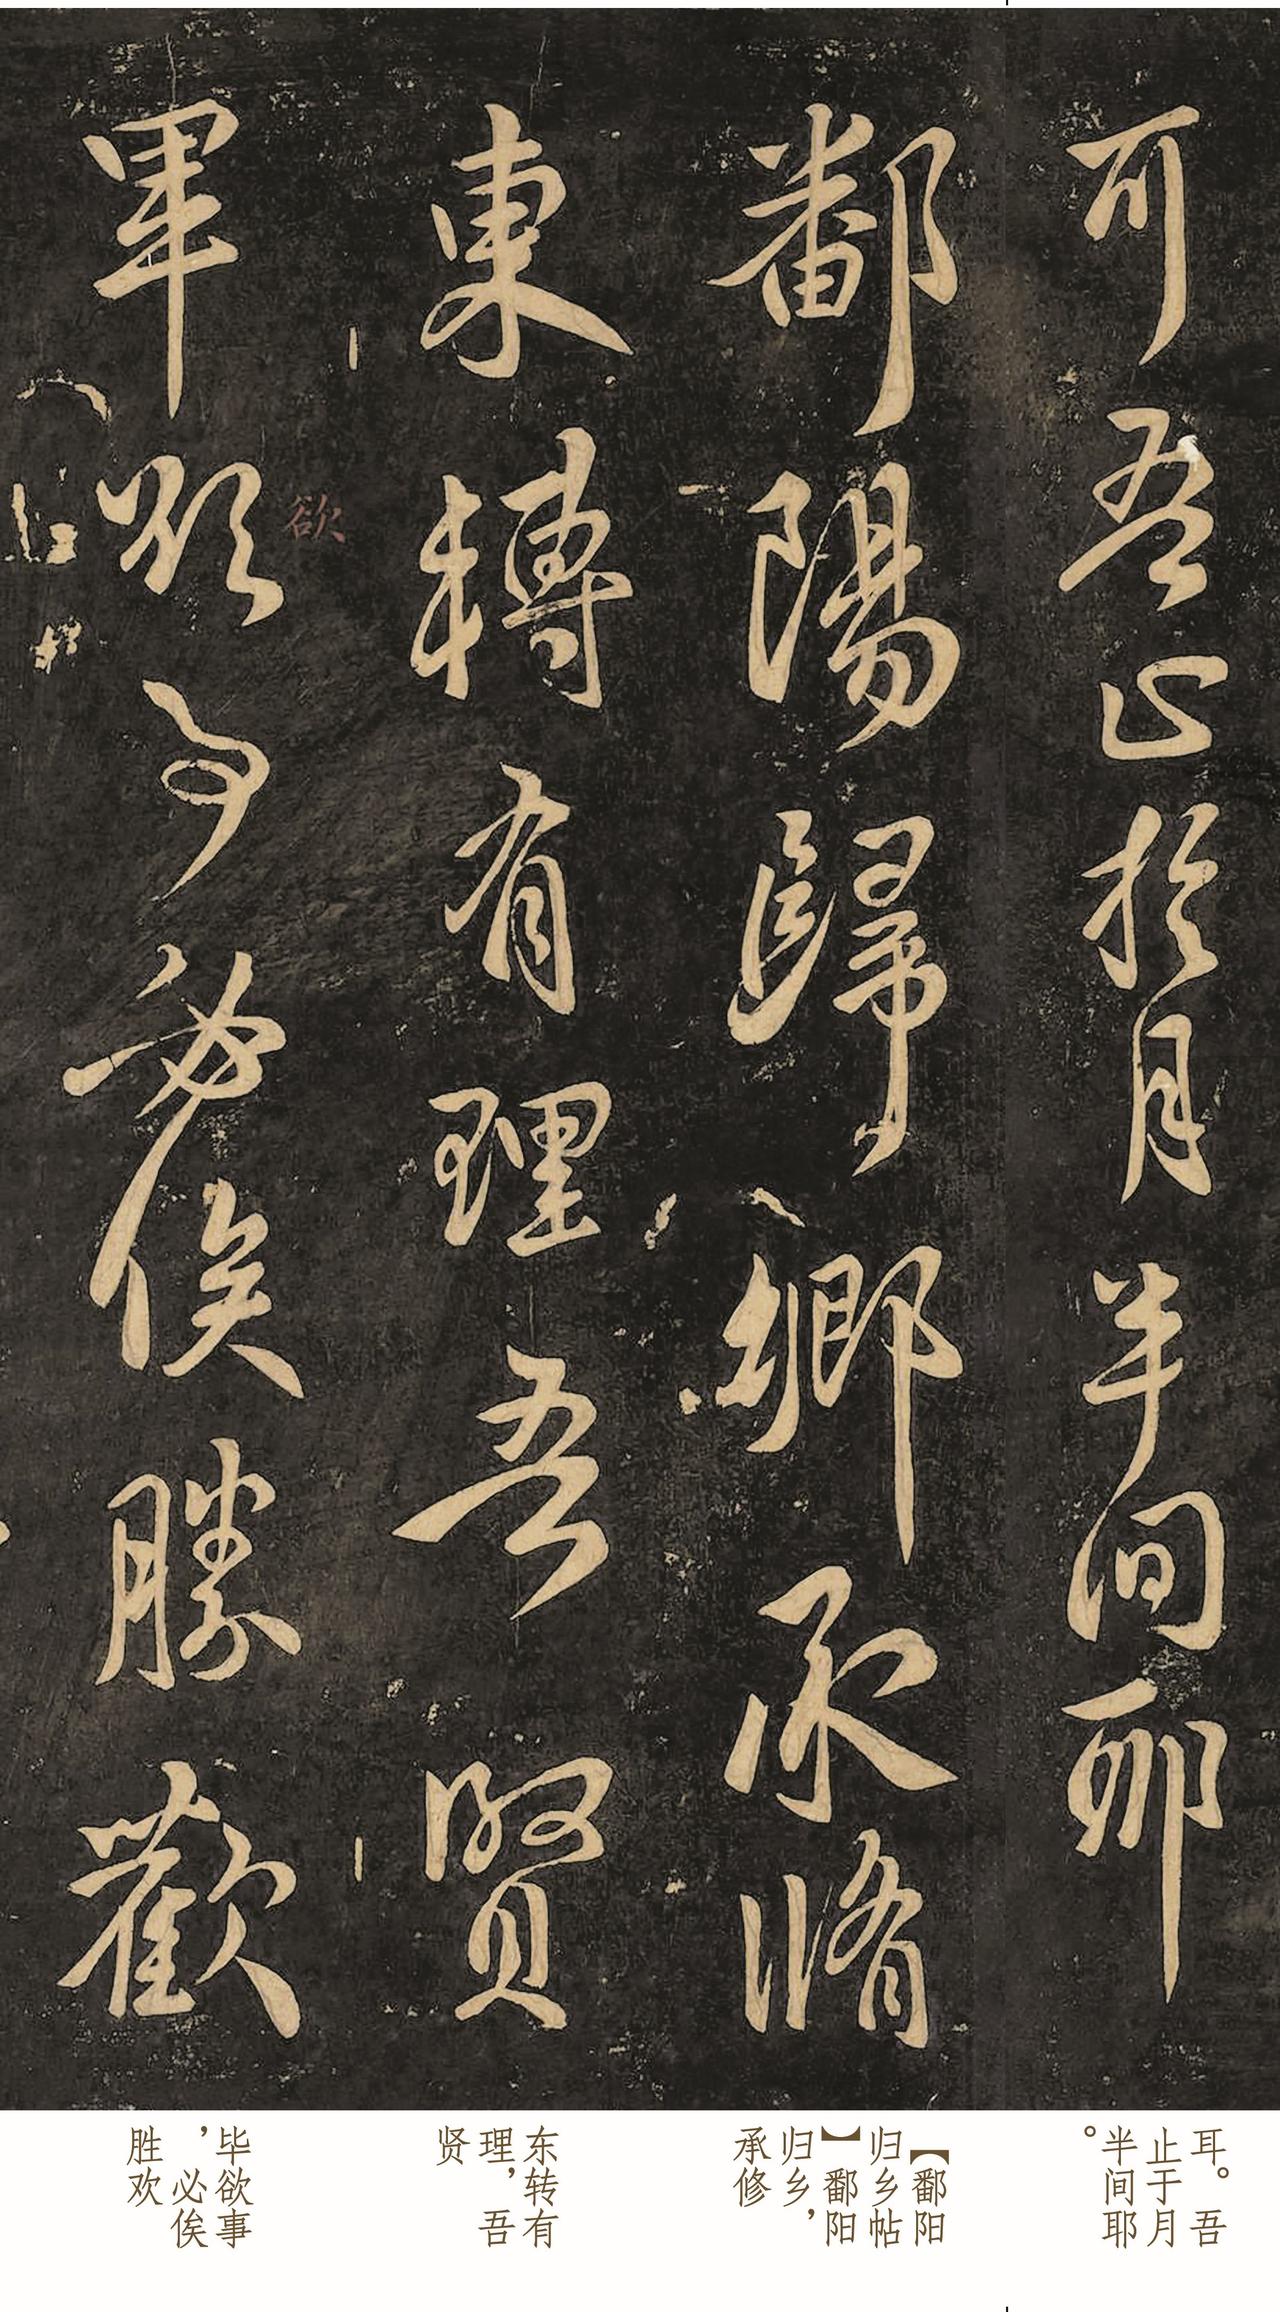 耳吾止於月半间耶
鄱陽歸鄉承脩
東轉有理吾賢
畢欲事必俟勝歡
欲
耳。吾
止于月
半间耶
。
【鄱阳
归乡帖
】鄱阳
归乡，
承修
东转有
理，吾
贤
毕欲事
，必俟
胜欢